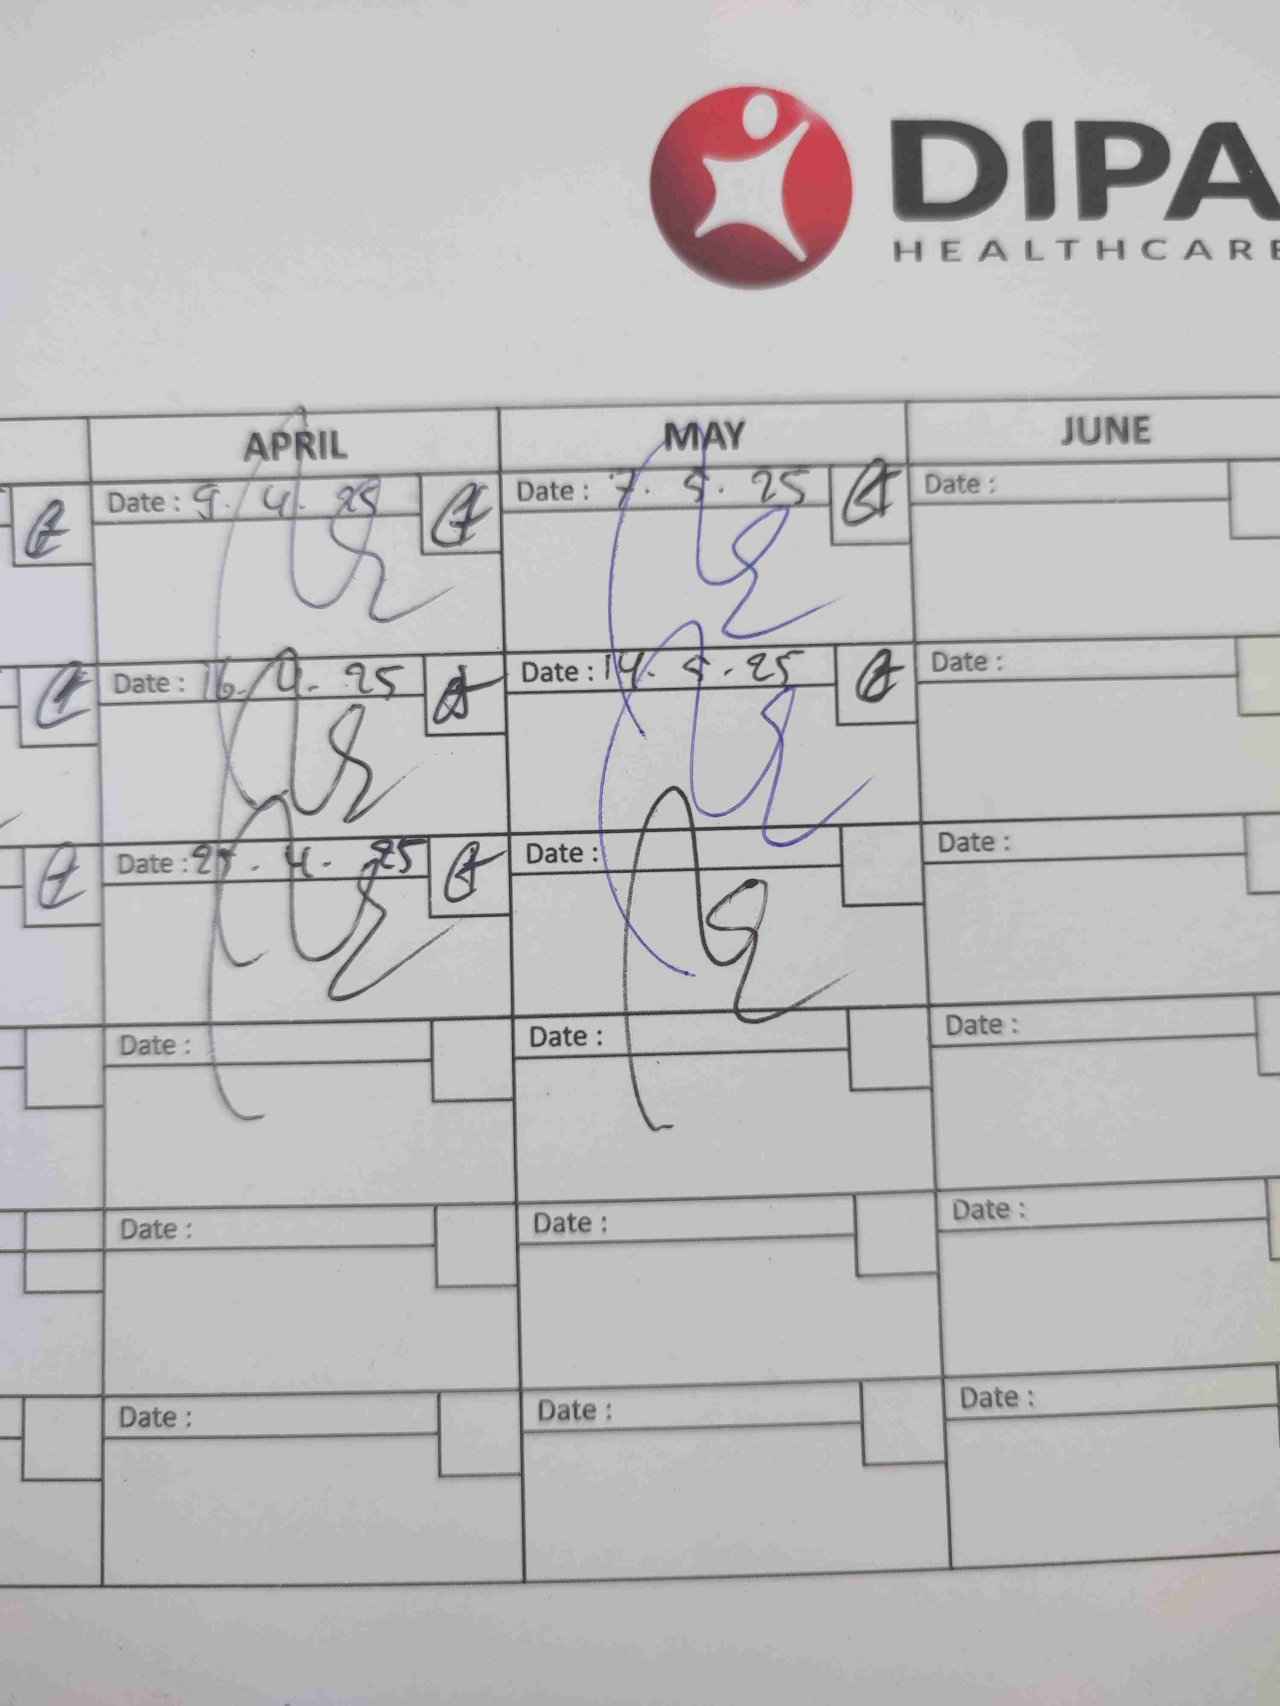 DIPA
HEALTHCARE
APRIL MAY JUNE
Date : 9. 4. 25 Date : 7. 5. 25 Date :
Date : 16. 4. 25 Date : 14. 5. 25 Date :
Date : 4. 25 Date : Date :
Date : Date : Date :
Date : Date : Date :
Date : Date : Date :